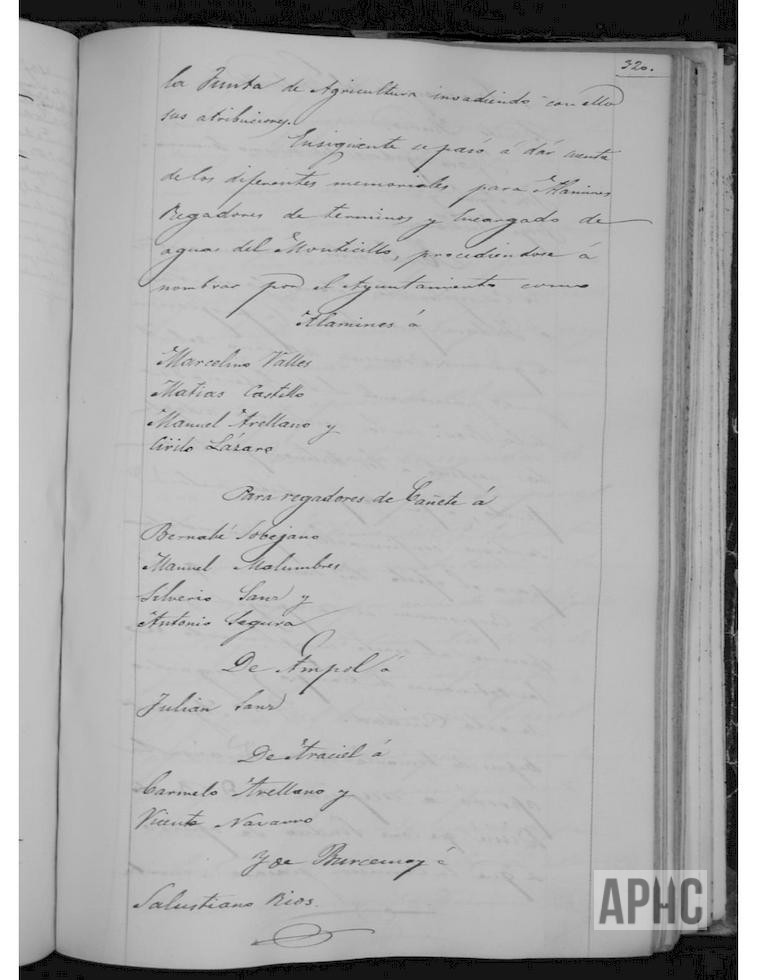 320.
la Junta de Agricultura invadiendo con ello
sus atribuciones.
Enseguida se pasó á dár cuenta
de los diferentes memoriales para Alamines
Regadores de terminos y Encargado de
aguas del Monticillo, procediendose á
nombrar por el Ayuntamiento como
Alamines á
Marcelino Valles
Matias Castillo
Manuel Arellano y
Cirilo Lázaro
Para regadores de Cañete á
Bernabé Sobejano
Manuel Malumbres
Silverio Sanz y
Antonio Segura
De Ampol á
Julian Sanz
De Araciel á
Carmelo Arellano y
Vicente Navarro
Y de á
Salustiano Rios.
APHC